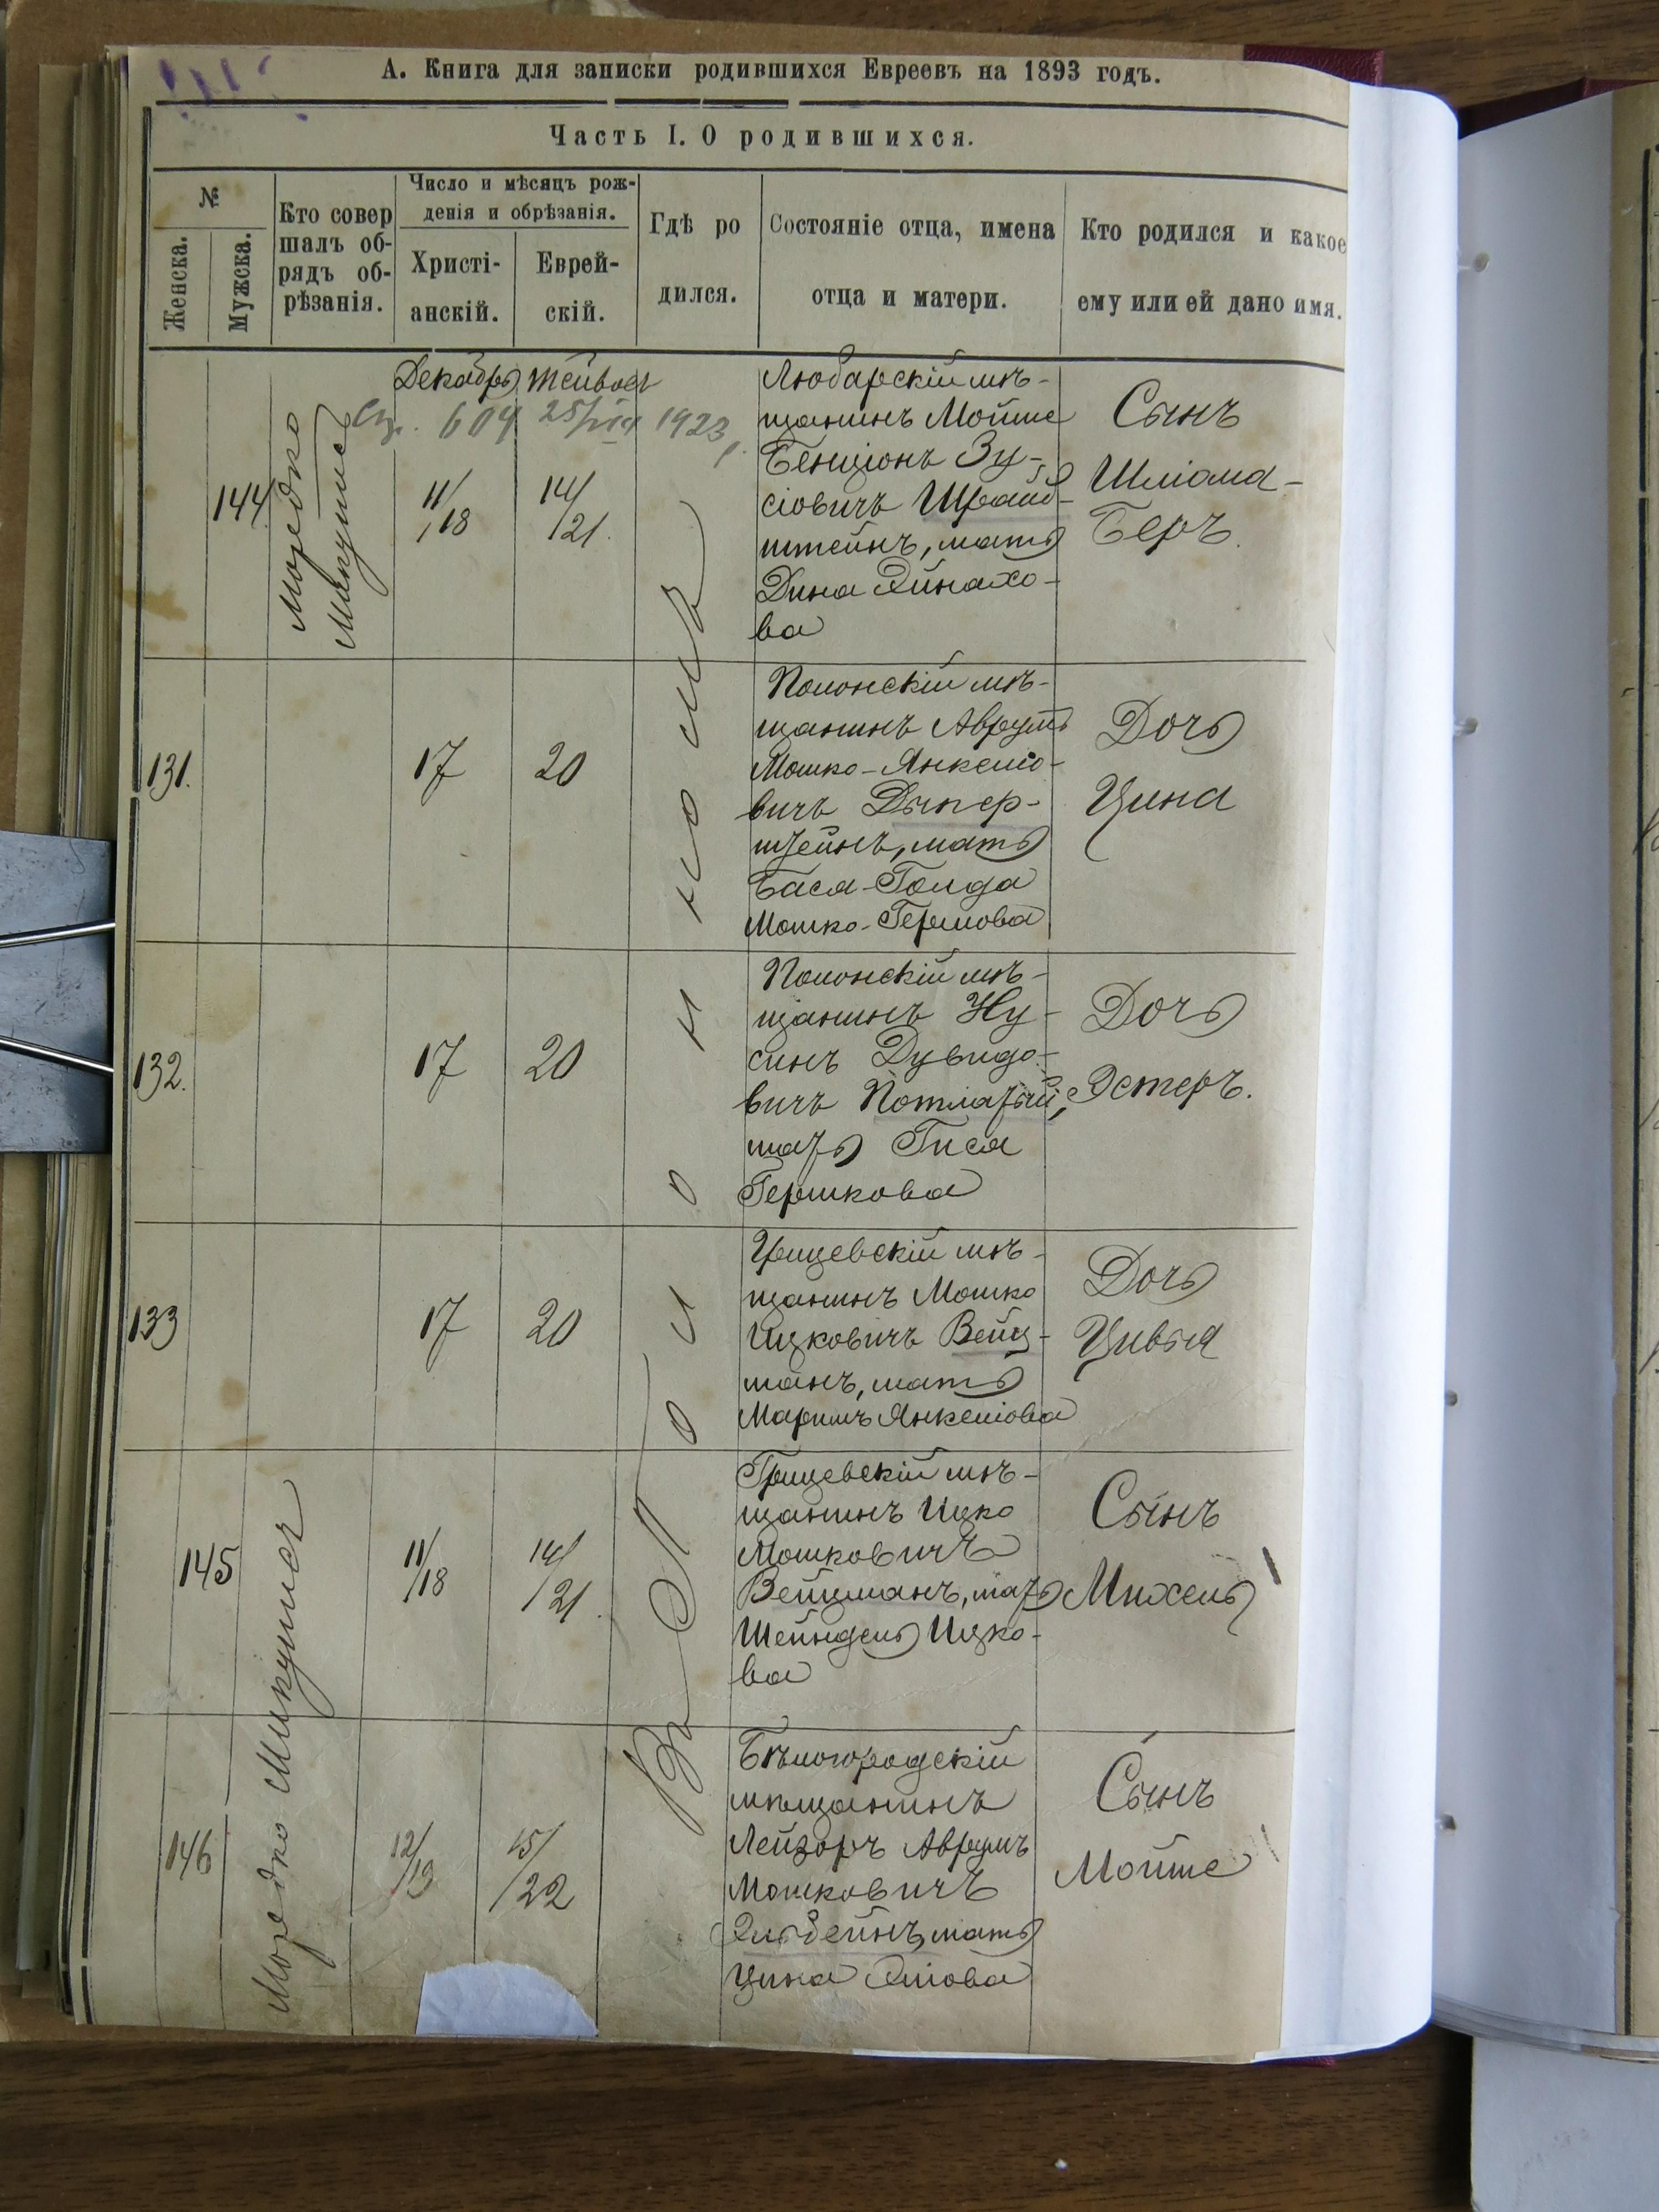 А. Книга для записки родившихся Евреевъ на 1893 годъ.
Часть I. О родившихся.
№
Женска.
Мужска.
Кто совер
шалъ об-
рядъ об-
рѣзанія.
Число и мѣсяцъ рож-
денія и обрѣзанія.
Христі-
анскій.
Еврей-
скій.
Гдѣ ро
дился.
Состояніе отца, имена
отца и матери.
Кто родился и какое
ему или ей дано имя.
Декабрь Тейвесъ
604 1923
144
Мордко
11/18
14/21.
Любарскій мѣ-
щанинъ Мойше
Бенціонъ Зу-
сіовичъ
штейнъ, мать
Дина
ва
Сынъ
Шліома-
Беръ.
131.
17
20
Полонскій мѣ-
щанинъ Аврумъ
Мошко-Янкеліо-
вичъ
штейнъ, мать
Бася-Голда
Мошко-Гершова
Дочь
Цина
132.
17
20
Полонскій мѣ-
щанинъ Ну-
синъ Дувидо-
вичъ
мать Гися
Гершкова
Дочь
Эстеръ.
133
17
20
Грицевскій мѣ-
щанинъ Мошко
Ицковичъ Вейц-
манъ, мать
Маримъ Янкеліова
Дочь
Цивья
145
Мордко
11/18
14/21.
Грицевскій мѣ-
щанинъ Ицко
Мошковичъ
Вейцманъ, мать
Шейндель Ицко-
ва
Сынъ
Михель
146
12/19
15/22
Бѣлогородскій
мѣщанинъ
Лейзоръ Аврумъ
Мошковичъ
мать
Цина Эліова
Сынъ
Мойше